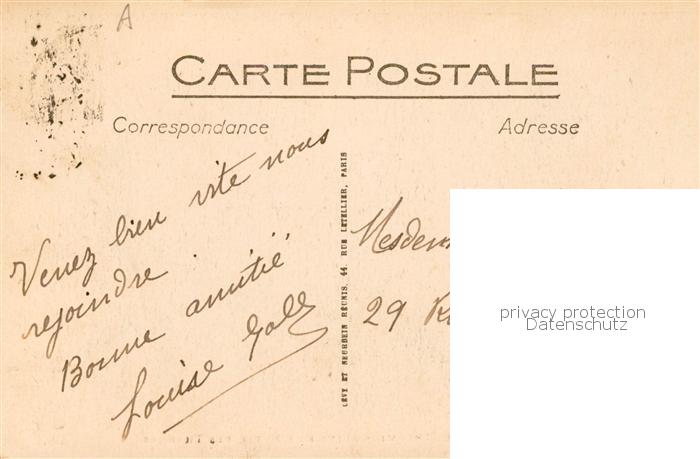 A
CARTE POSTALE
Correspondance
Adresse
Venez bien vite nous
rejoindre.
Bonne amitié
Louise
LÉVY ET NEURDEIN RÉUNIS, 44, RUE LETELLIER, PARIS
29
privacy protection
Datenschutz